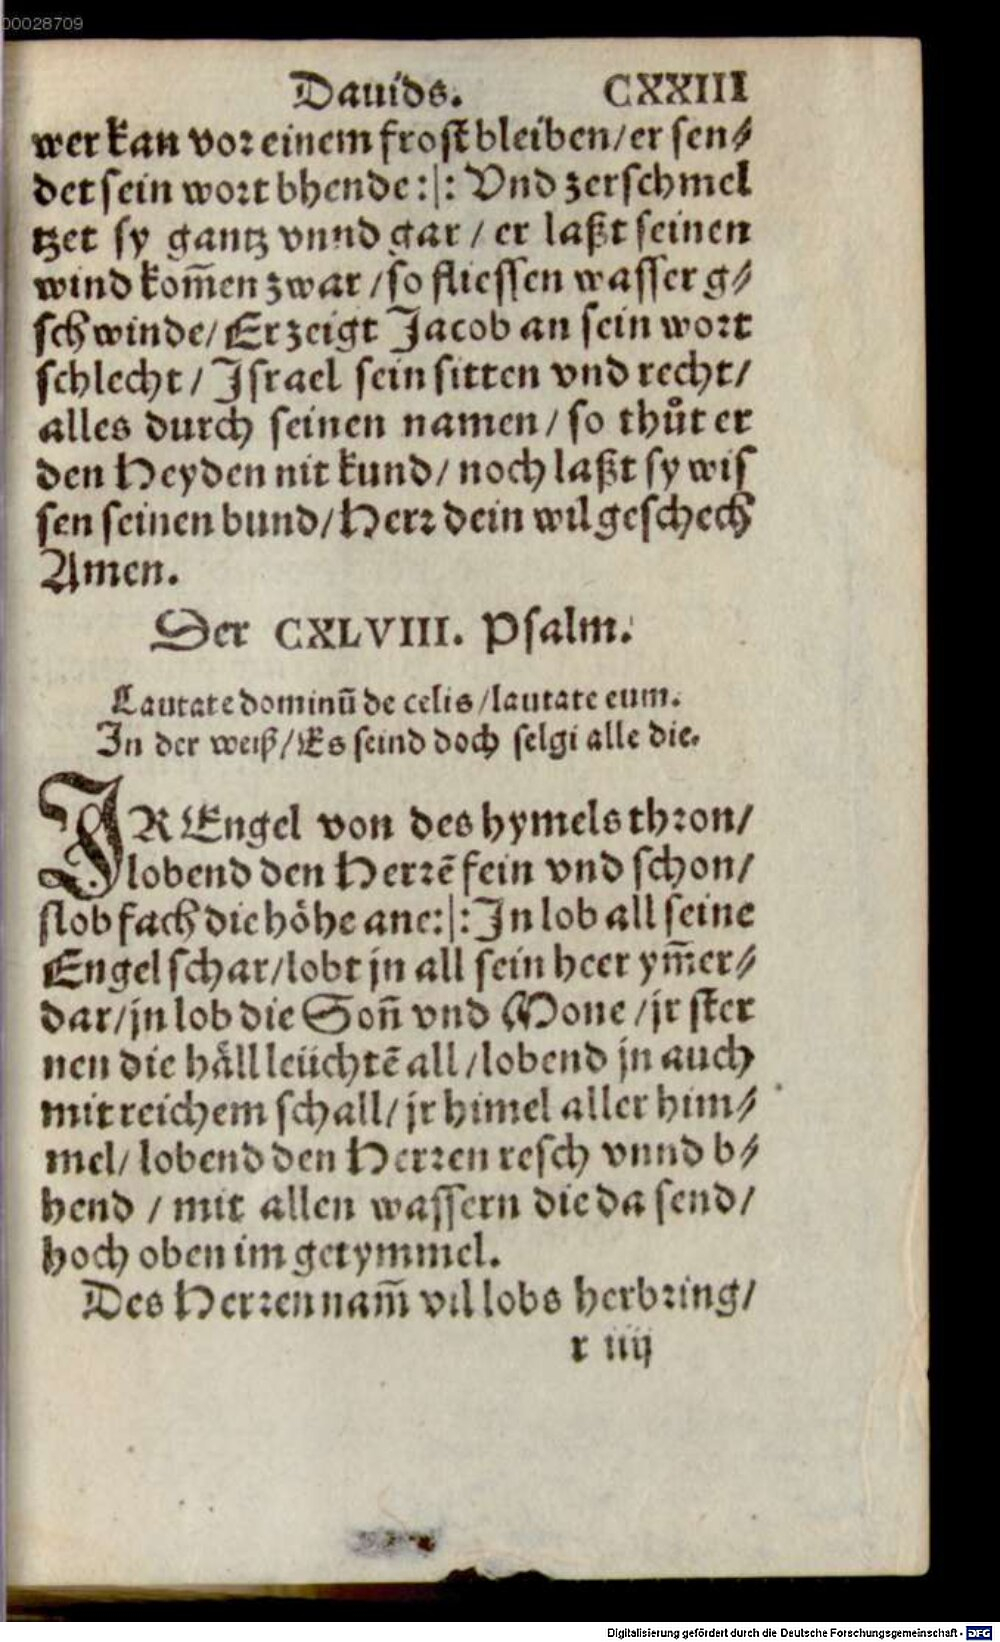 00028709
Dauids. CXXIII
wer kan vor einem frost bleiben/er sen⸗
det sein wort bhende:|: Vnd zerschmel
tzet sy gantz vnnd gar / er laßt seinen
wind kom̃en zwar /so fliessen wasser g⸗
schwinde/ Er zeigt Jacob an sein wort
schlecht/ Jsrael sein sitten vnd recht/
alles durch seinen namen/ so thůt er
den Heyden nit kund/ noch laßt sy wis
sen seinen bund/ Herr dein wil geschech
Amen.
Der CXLVIII. Psalm.
Lautate dominũ de celis /lautate eum.
Jn der weiß/ Es seind doch selgi alle die.
JR Engel von des hymels thron/
lobend den Herrẽ fein vnd schon/
slob fach die höhe ane:|: Jn lob all seine
Engel schar/lobt jn all sein heer ym̃er⸗
dar/jn lob die Soñ vnd Mone /jr ster
nen die häll leüchtẽ all /lobend jn auch
mit reichem schall/ jr himel aller him⸗
mel/ lobend den Herren resch vnnd b⸗
hend / mit allen wassern die da send/
hoch oben im getymmel.
Des Herren nam̃ vil lobs herbring/
r iiij
Digitalisierung gefördert durch die Deutsche Forschungsgemeinschaft - DFG